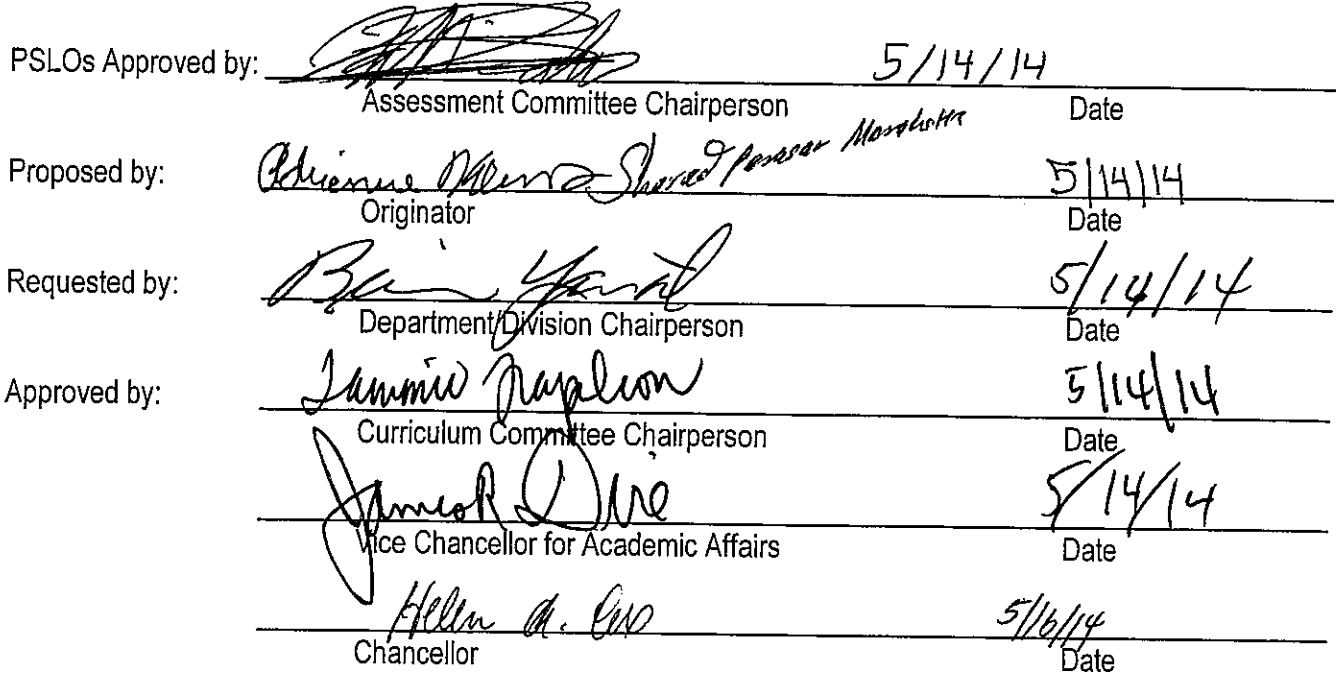 PSLOs Approved by: 5/14/14
Assessment Committee Chairperson Date
Proposed by: Adrienne 5/14/14
Originator Date
Requested by: 5/14/14
Department/Division Chairperson Date
Approved by: Tammie Napoleon 5/14/14
Curriculum Committee Chairperson Date
James R Dire 5/14/14
Vice Chancellor for Academic Affairs Date
Helen A. Cox 5/16/14
Chancellor Date